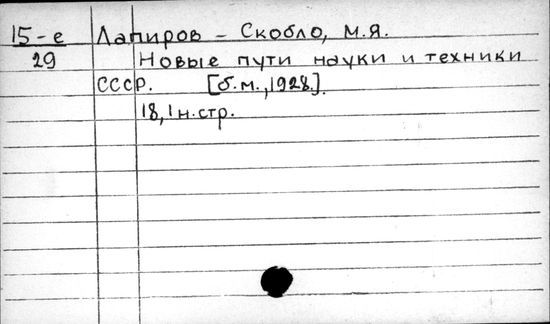 15-е Лапиров - Скобло, М.Я.
29 Новые пути науки и техники
СССР. [б.м., 1928.]
18, 1 н. стр.